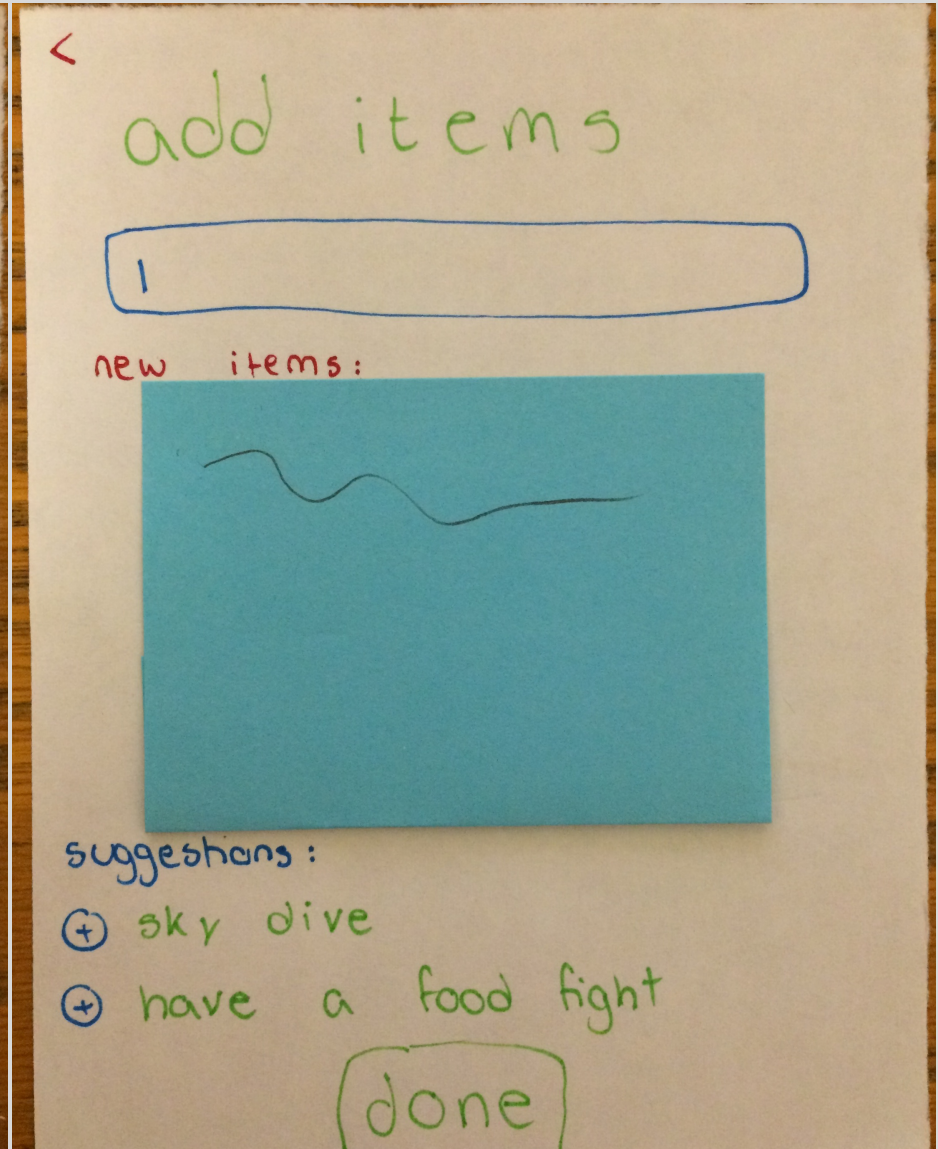 <
add items
new items:
suggestions:
+ sky dive
+ have a food fight
done